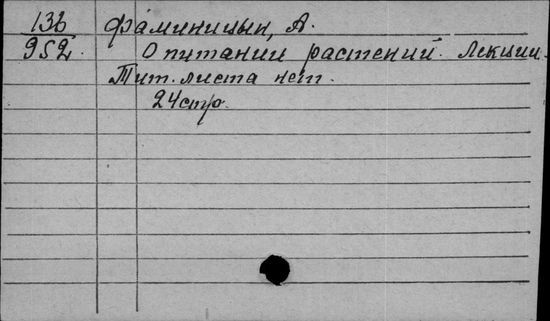 136 Фаминицын, А.
952 О питании растений. Лекции.
Тит. листа нет.
24 стр.